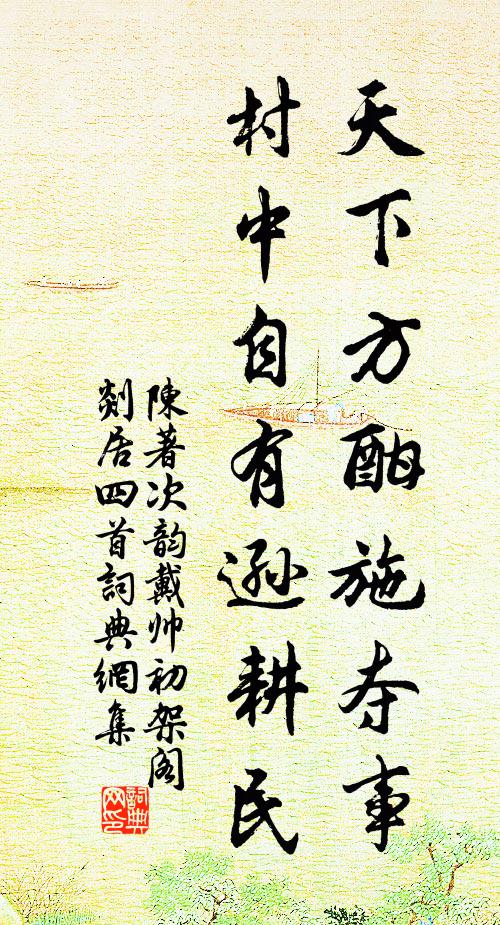 天下方酣施夺事
村中自有逊耕民
陳著次韵戴帅初架阁
剡居四首詞典網集
詞典网印